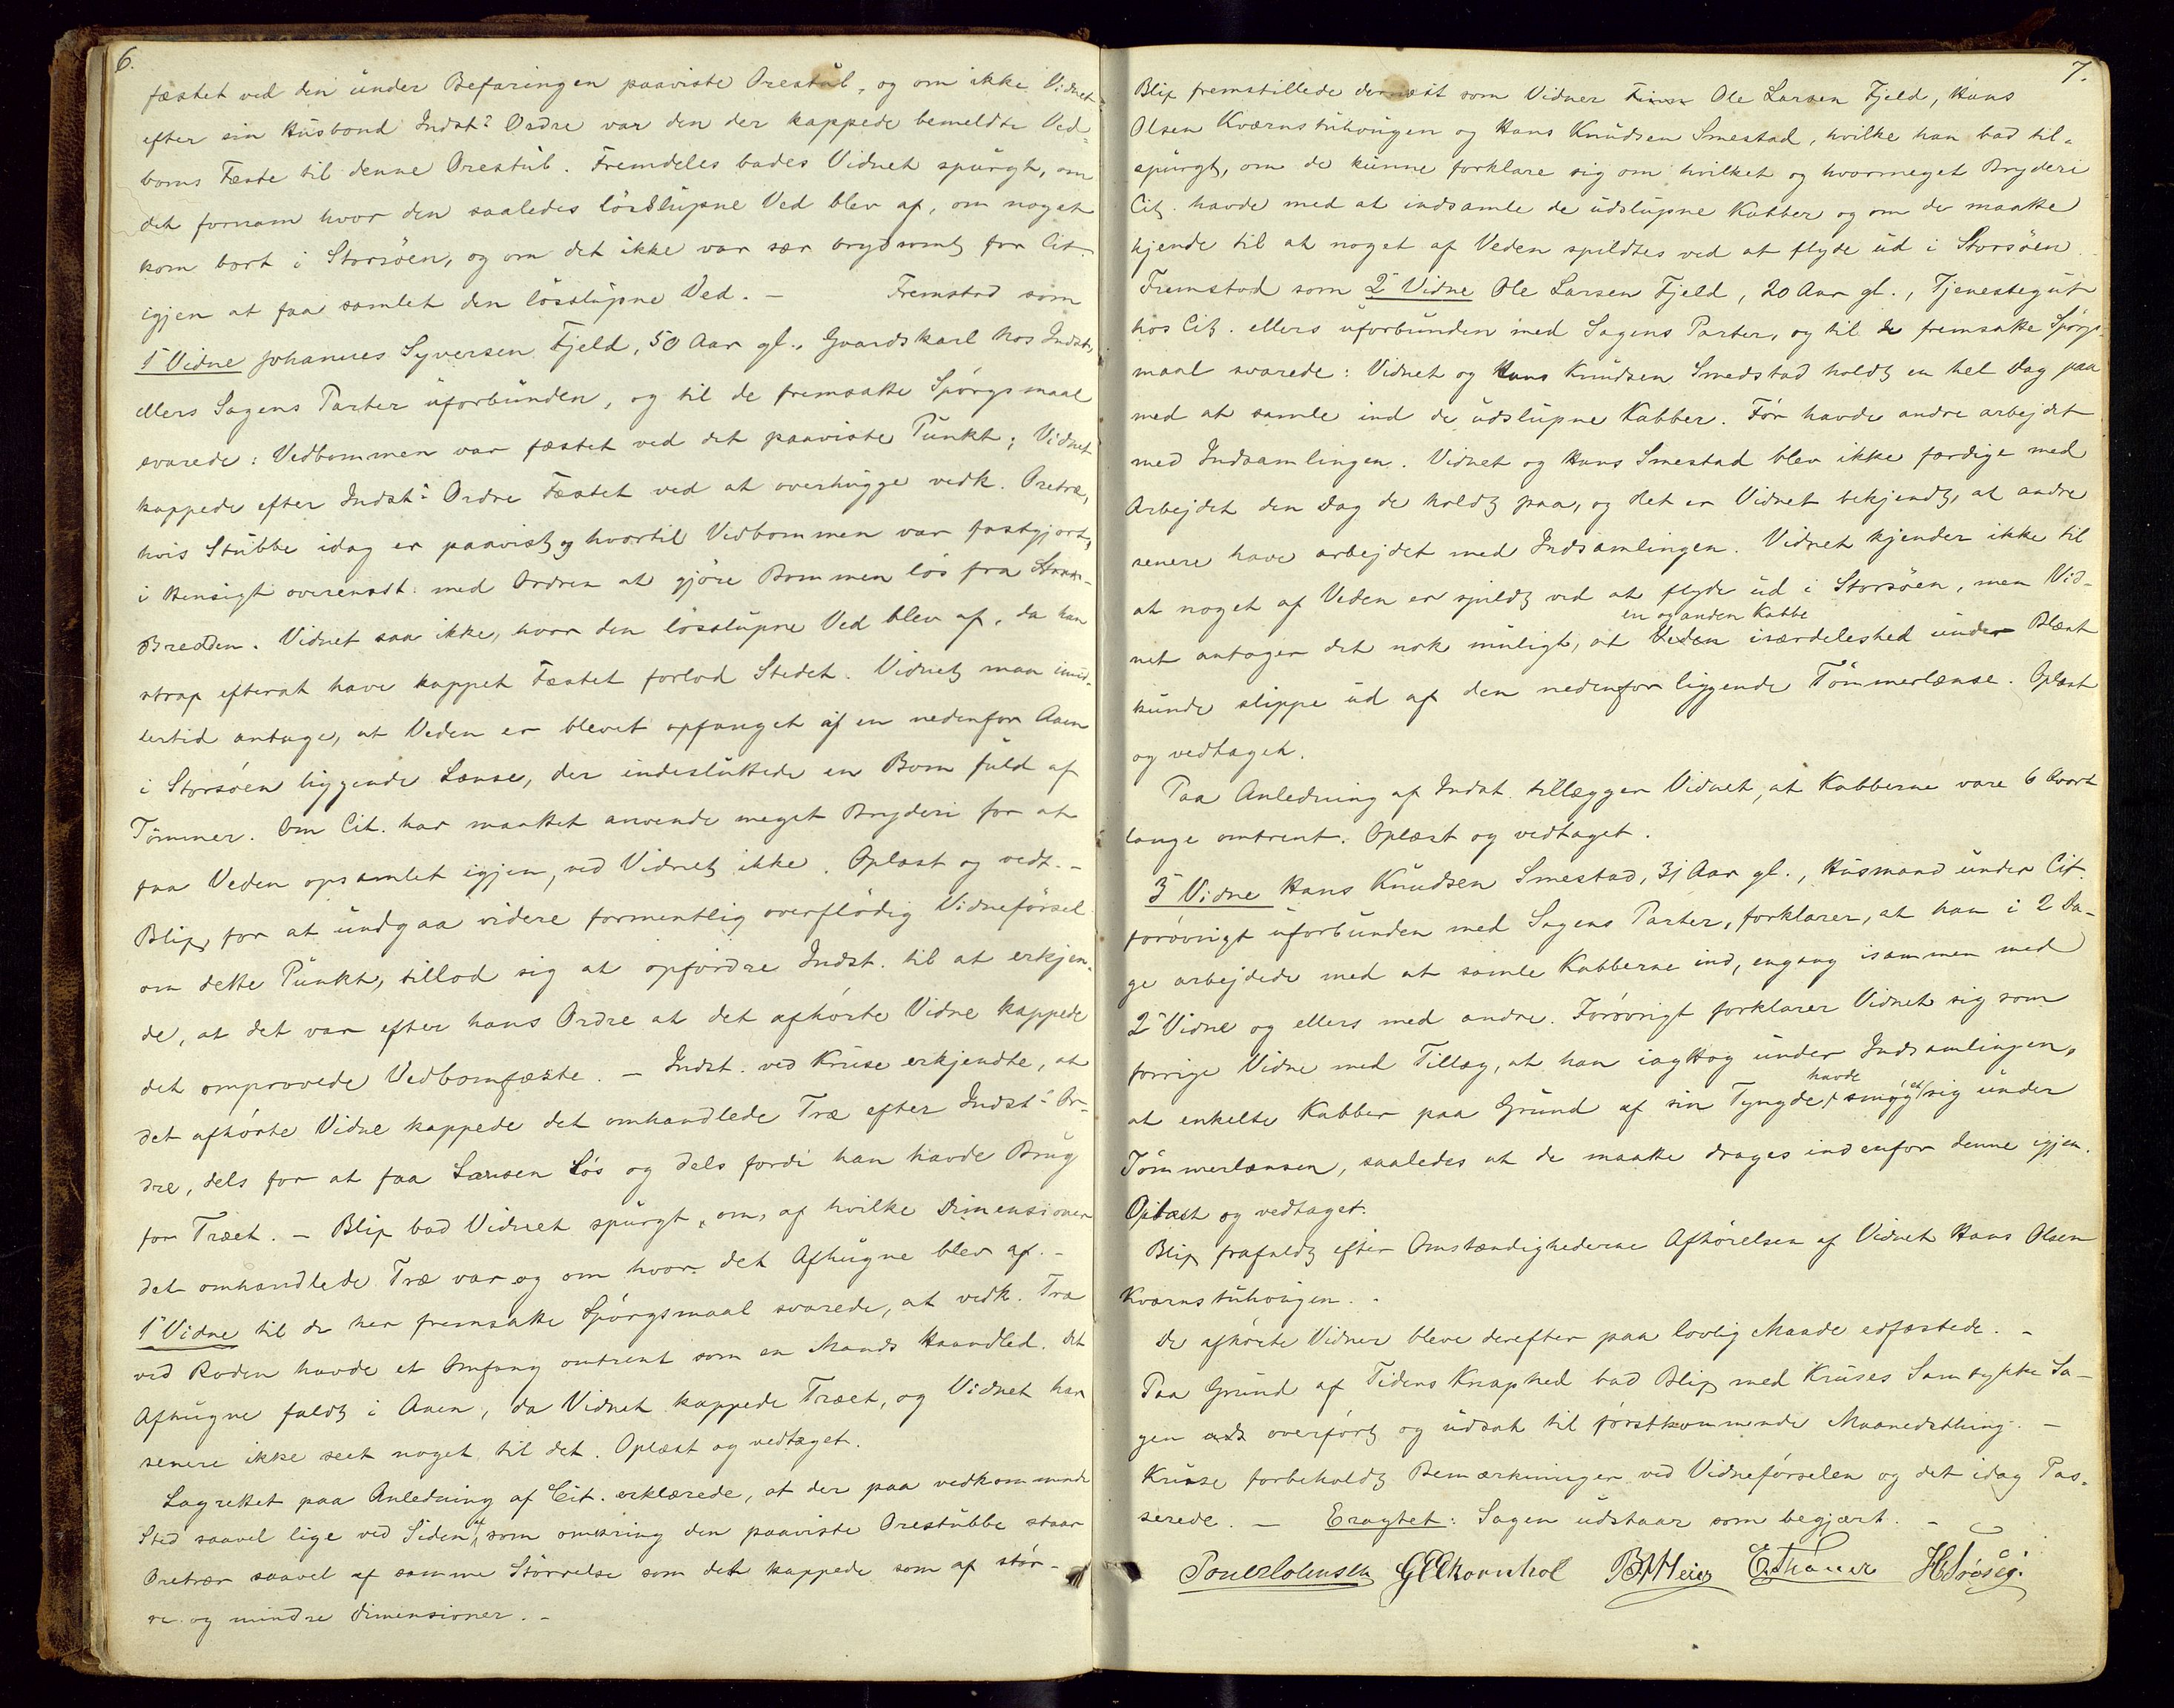 6.
fæstet ved den under Befaringen paaviste Orestub, og om ikke Vidnet
efter sin Husbond Indst.s Ordre var den der kappede bemeldte Ved-
boms Fæste til denne Orestub. Fremdeles bades Vidnet spurgt, om
det fornam hvor den saaledes løsslupne Ved blev af, om noget
kom bort i Storsøen, og om det ikke var svær brydsomt for Cit.
igjen at faa samlet den løsslupne Ved. – Fremstod som
1ste Vidne Johannes Syversen Fjeld, 50 Aar gl., Gaardskarl hos Indst.,
ellers Sagens Parter uforbunden, og til de fremsatte Spørgsmaal
svarede: Vedbommen var fæstet ved det paaviste Punkt; Vidnet
kappede efter Indst.s Ordre Fæstet ved at overhugge vedk. Oretræ,
hvis Stubbe idag er paavist, og hvortil Vedbommen var fastgjort,
i Hensigt overensst. med Ordren at gjøre Bommen løs fra Strand-
Bredden. Vidnet saa ikke, hvor den løsslupne Ved blev af, da han
strax efterat have kappet Fæstet forlod Stedet. Vidnet maa imid-
lertid antage, at Veden er blevet opfanget af en nedenfor Aaen
i Storsøen liggende Lænse, der indesluttede en Bom fuld af
Tømmer. Om Cit. har maattet anvende meget Bryderi for at
faa Veden opsamlet igjen, ved Vidnet ikke. Oplæst og vedt. –
Blix, for at undgaa videre formentlig overflødig Vidneførsel
om dette Punkt, tillod sig at opfordre Indst. til at erkjen-
de, at det var efter hans Ordre at det afhørte Vidne kappede
det omprovede Vedbomfæste. – Indst. ved Kruse erkjendte, at
det afhørte Vidne kappede det omhandlede Træ efter Indst.s Or-
dre, dels for at faa Lænsen Løs og dels fordi han havde Brug
for Træet. – Blix bad Vidnet spurgt, om, af hvilke Dimensioner
det omhandlede Træ var og om hvor det Afhugne blev af. –
1ste Vidne til de her fremsatte Spørgsmaal svarede, at vedk. Træ
ved Roden havde et Omfang omtrent som en Mands Haandled. Det
Afhugne faldt i Aaen, da Vidnet kappede Træet, og Vidnet har
senere ikke seet noget til det. Oplæst og vedtaget.
Lagrettet paa Anledning af Cit. erklærede, at der paa vedkommende
Sted saavel lige ved Siden af som omkring den paaviste Orestubbe staar
Oretrær saavel af samme Størrelse som det kappede som af stør-
re og mindre Dimensioner. –
7.
Blix fremstillede dernæst som Vidner Ole Larsen Fjeld, Hans
Olsen Kværnstuhougen og Hans Knudsen Smestad, hvilke han bad til-
spurgt, om de kunne forklare sig om hvilket og hvormeget Bryderi
Cit. havde med at indsamle de udslupne Kubber og om de maatte
kjende til at noget af Veden spildtes ved at flyde ud i Storsøen.
Fremstod som 2det Vidne Ole Larsen Fjeld, 20 Aar gl., Tjenestegut
hos Cit. ellers uforbunden med Sagens Parter, og til de fremsatte Spørgs-
maal svarede: Vidnet og Hans Knudsen Smedstad holdt en hel Dag paa
med at samle ind de udslupne Kubber. Før havde andre arbejdet
med Indsamlingen. Vidnet og Hans Smestad blev ikke færdige med
Arbejdet den Dag de holdt paa, og det er Vidnet bekjendt, at andre
senere have arbejdet med Indsamlingen. Vidnet kjender ikke til
at noget af Veden er spildt ved at flyde ud i Storsøen, men Vid-
en og anden Kubbe
net antager det nok muligt, at Veden isærdeleshed under Blæst
kunde slippe ud af den nedenfor liggende Tømmerlænse. Oplæst
og vedtaget.
Paa Anledning af Indst. tillægger Vidnet, at Kubberne vare 6 Kvart
lange omtrent. Oplæst og vedtaget.
3die Vidne Hans Knudsen Smestad, 31 Aar gl., Husmand under Cit.
forøvrigt uforbunden med Sagens Parter, forklarer, at han i 2 Da-
ge arbejdede med at samle Kubberne ind, engang isammen med
2det Vidne og ellers med andre. Forøvrigt forklarer Vidnet sig som
forrige Vidne med Tillæg, at han iagttog under Indsamlingen,
havde
at enkelte Kubber paa Grund af sin Tyngde smøget sig under
Tømmerlænsen, saaledes at de maatte drages indenfor denne igjen.
Oplæst og vedtaget.
Blix frafaldt efter Omstændighederne Afhørelsen af Vidnet Hans Olsen
Kværnstuhougen. –
De afhørte Vidner bleve derefter paa lovlig Maade edfæstede. –
Paa Grund af Tidens Knaphed bad Blix med Kruses Samtykke Sa-
gen overført og udsat til førstkommende Maanedsthing. –
Kruse forbeholdt Bemærkninger ved Vidneførselen og det idag Pas-
serede. – Eragtet: Sagen udstaar som begjært. –